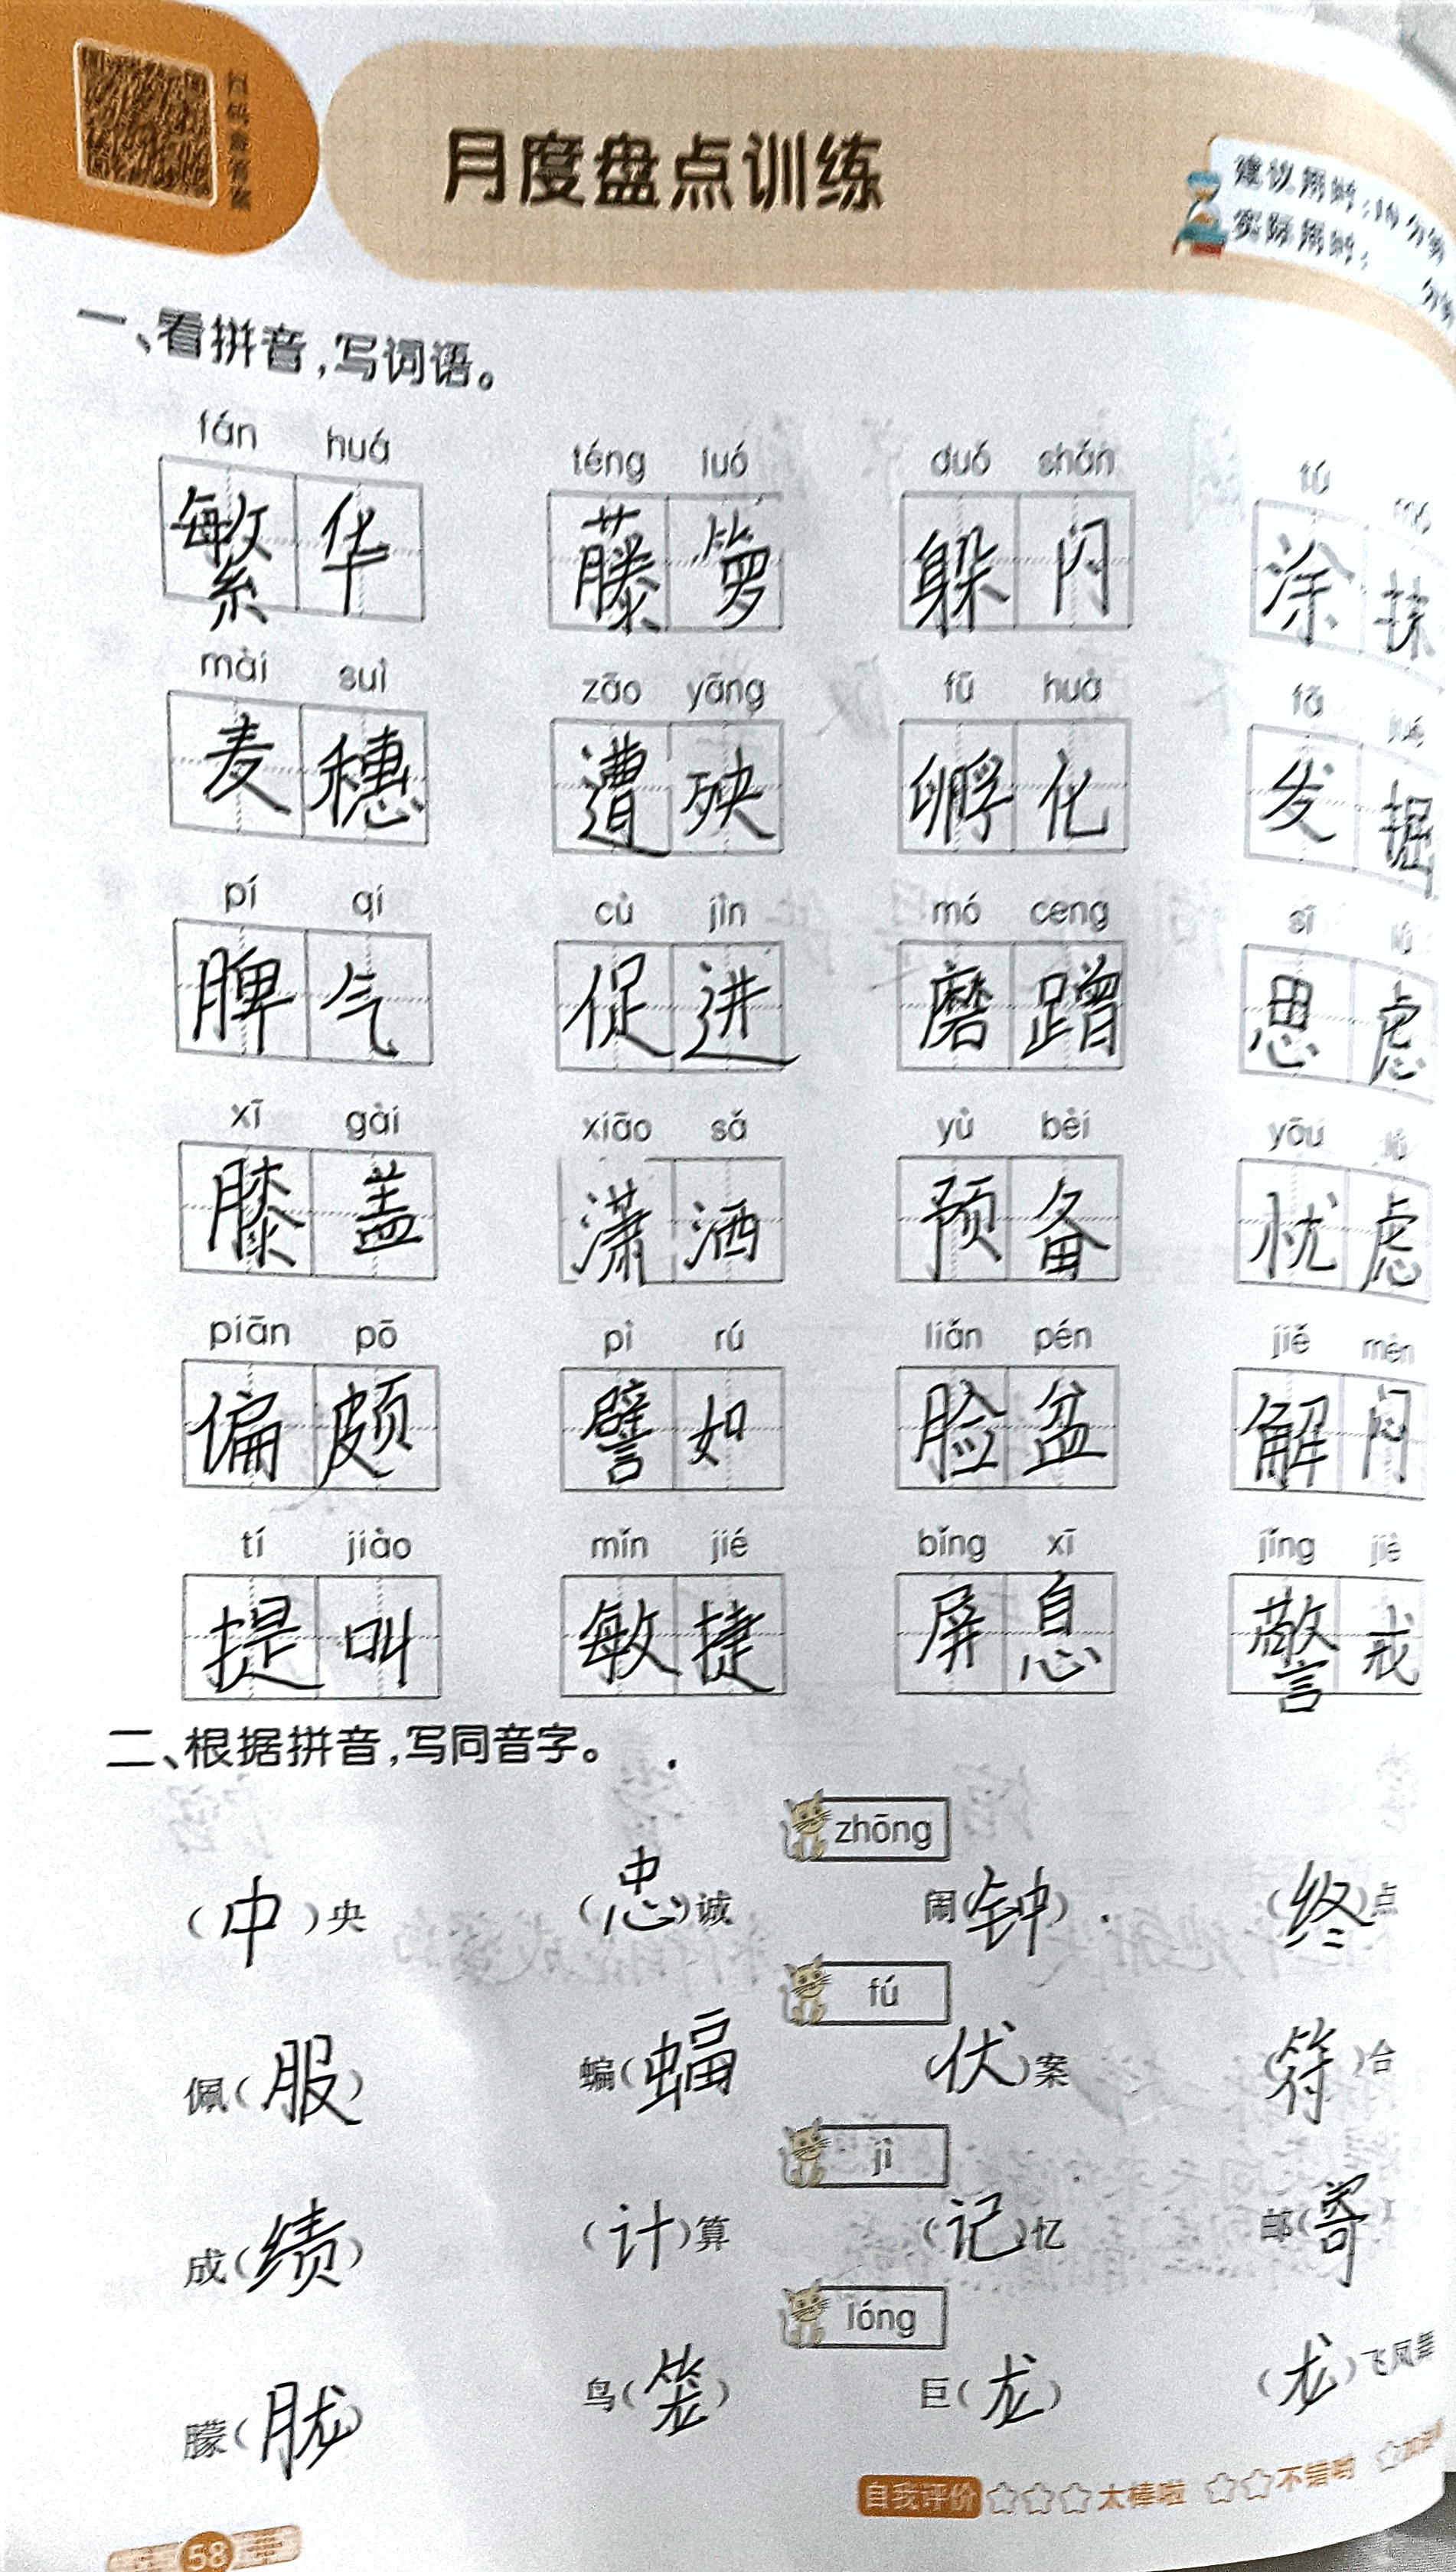 月度盘点训练
建议用时:10分钟
实际用时: 分钟
一、看拼音,写词语。
fán huá téng luó duǒ shǎn tú mǒ
繁华 藤箩 躲闪 涂抹
mài suì zāo yāng fū huà fā jué
麦穗 遭殃 孵化 发掘
pí qi cù jìn mó ceng sī lǜ
脾气 促进 磨蹭 思虑
xī gài xiāo sǎ yù bèi yōu lǜ
膝盖 潇洒 预备 忧虑
piān pō pì rú liǎn pén jiě mèn
偏颇 譬如 脸盆 解闷
tí jiào mǐn jié bǐng xī jǐng jiè
提叫 敏捷 屏息 警戒
二、根据拼音,写同音字。
zhōng
(中)央 (忠)诚 闹(钟) (终)点
fú
佩(服) 蝙(蝠) (伏)案 (符)合
jì
成(绩) (计)算 (记)忆 邮(寄)
lóng
朦(胧) 鸟(笼) 巨(龙) (龙)飞凤舞
自我评价 ☆☆☆太棒啦 ☆☆不错哟 ☆
58